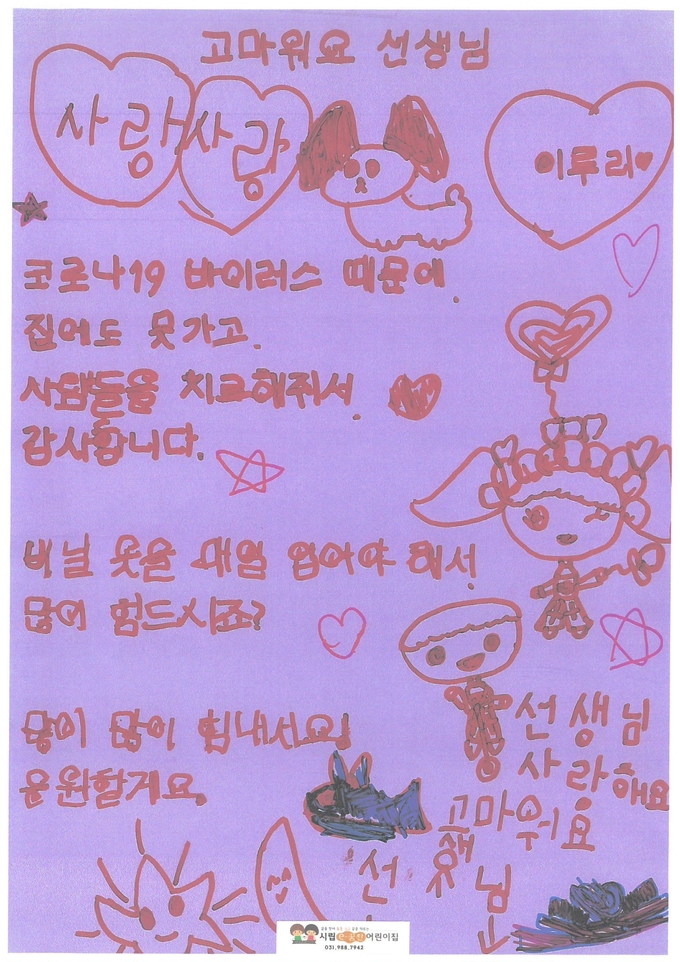 고마워요 선생님
사랑 사랑
이루리♥
코로나19 바이러스 때문에.
집에도 못가고.
사람들을 치료해줘서.
감사합니다.
비닐 옷을 매일 입어야 해서.
많이 힘드시죠?
많이 많이 힘내세요!
응원할게요.
선생님
사라해요
고마워요
선생님
시립 어린이집
031.988.7942